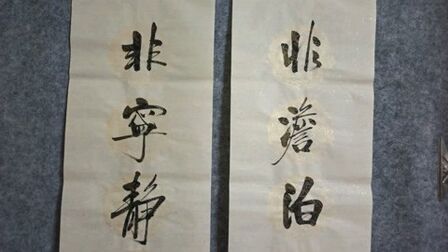 非澹泊
非宁静